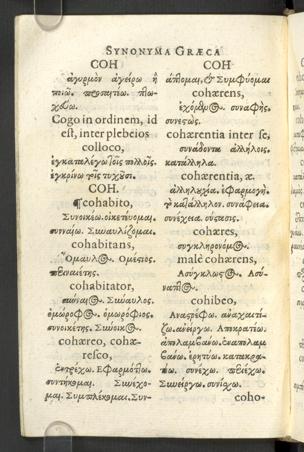 SYNONYMA GRÆCA
COH
ἀγυρμὸν ἀγείρω ἢ
ποιῶ. πτωχ
χεύω.
Cogo in ordinem, id
est, inter plebeios
colloco,
ἐγκαταλέγω τοῖς πολλοῖς.
ἐγκρίνω τοῖς τυχοῦσι.
COH.
¶cohabito,
Συνοικέω. οἰκετεύομαι.
συνναίω. Συναυλίζομαι.
cohabitans,
Ὅμαυλος. Ὁμέσιος.
cohabitator,
σύναυλος.
ὁμώροφος. ὁμωρόφιος.
συνοικέτης. Σύνοικος.
cohæreo, cohæ-
resco,
ἐντρέχω. Ἐφαρμόττω.
συντήκομαι. Συνέχο-
μαι. Συμπλέκομαι. Συν-
COH
άπτομαι, & Συμφύομαι
cohærens,
ἐχόμενος. συναφής.
συνεχῶς.
cohærentia inter se,
συνάδοντα ἀλλήλοις.
κατάλληλα.
cohærentia, æ
ἀλληλουχία. ἐφαρμογή.
τὸ κατάλληλον. συνάφεια.
συνέχεια. σύστασις.
cohæres,
συγκληρονόμος.
malè cohærens,
Ἀσύγκλωστος. Ἀσύ-
νακτος.
cohibeo,
Ἀναστρέφω. ἀναχαιτί-
ζω. ἀνείργω. Ἀποκρατέω.
ἀπολαμβάνω. ἐναπολαμ
βάνω. ἐρητύω. κατακρα-
τέω. συνέχω. πιέχω.
Συνείργω. συνίσχω.
coho-